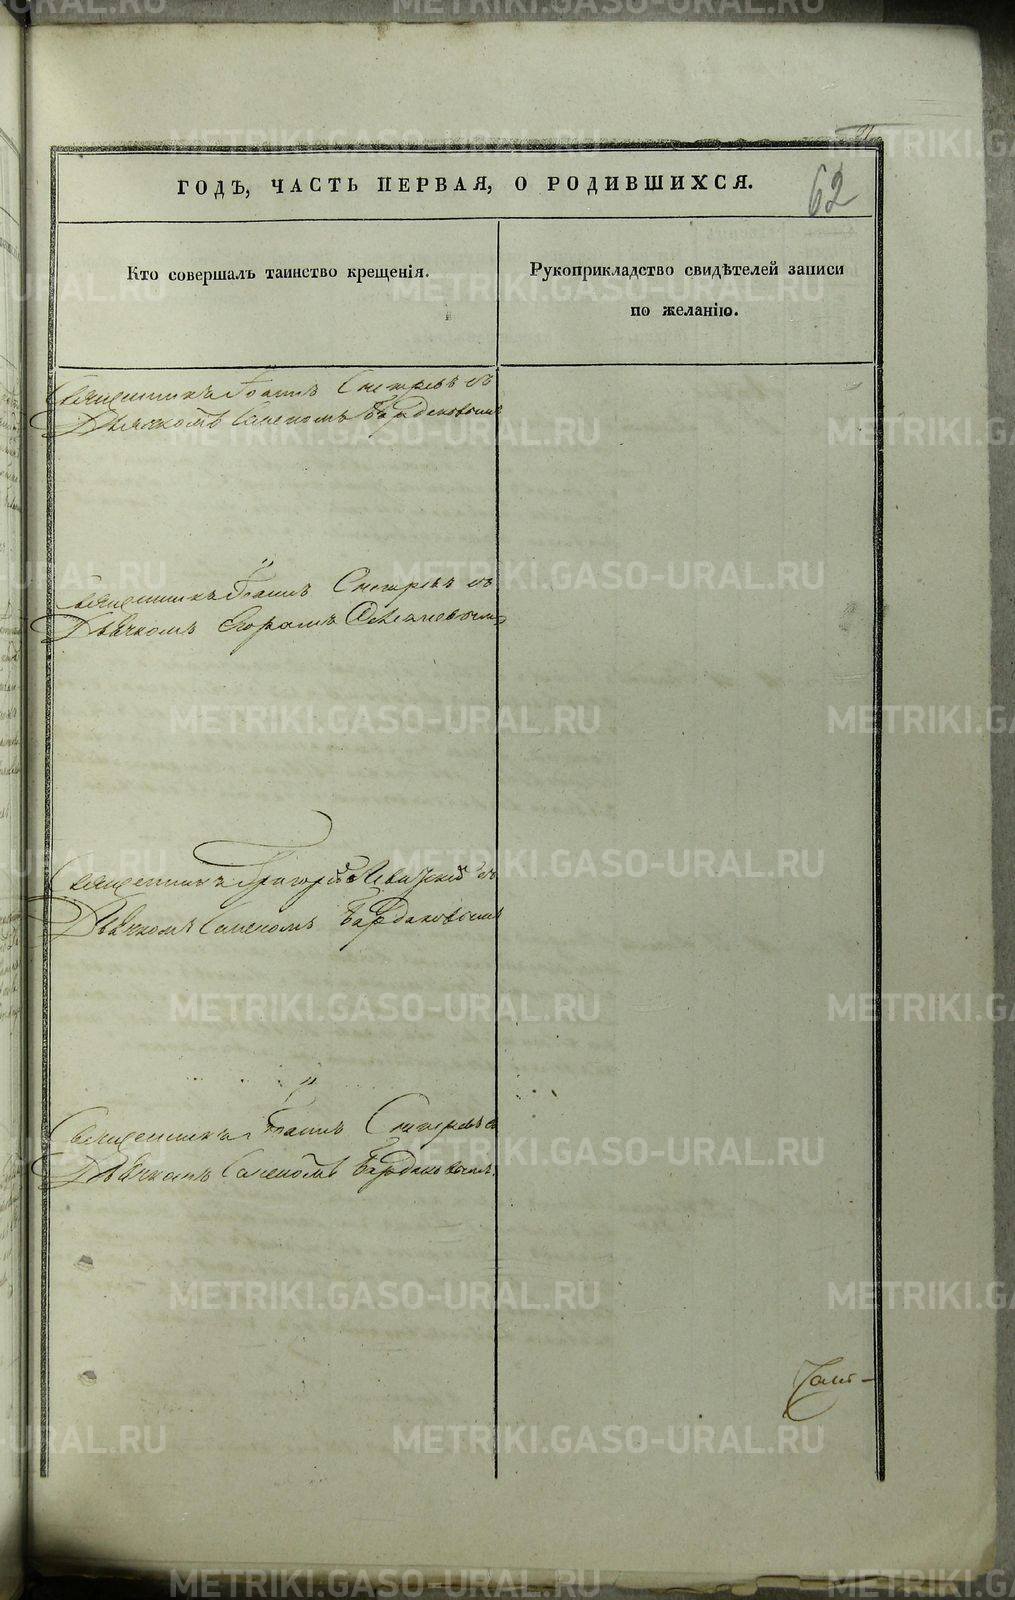 62
ГОДЪ, ЧАСТЬ ПЕРВАЯ, О РОДИВШИХСЯ.
Кто совершалъ таинство крещенія.
Рукоприкладство свидѣтелей записи
по желанію.
Священникъ Іоаннъ Снегиревъ съ
Дьячкомъ Семеномъ Бардаковымъ
Священникъ Іоаннъ Снегиревъ съ
Дьячкомъ Егоромъ
Священникъ Григорій Левитскій съ
Дьячкомъ Семеномъ Бардаковымъ
Священникъ Іоаннъ Снегиревъ съ
Дьячкомъ Семеномъ Бардаковымъ.
METRIKI.GASO-URAL.RU